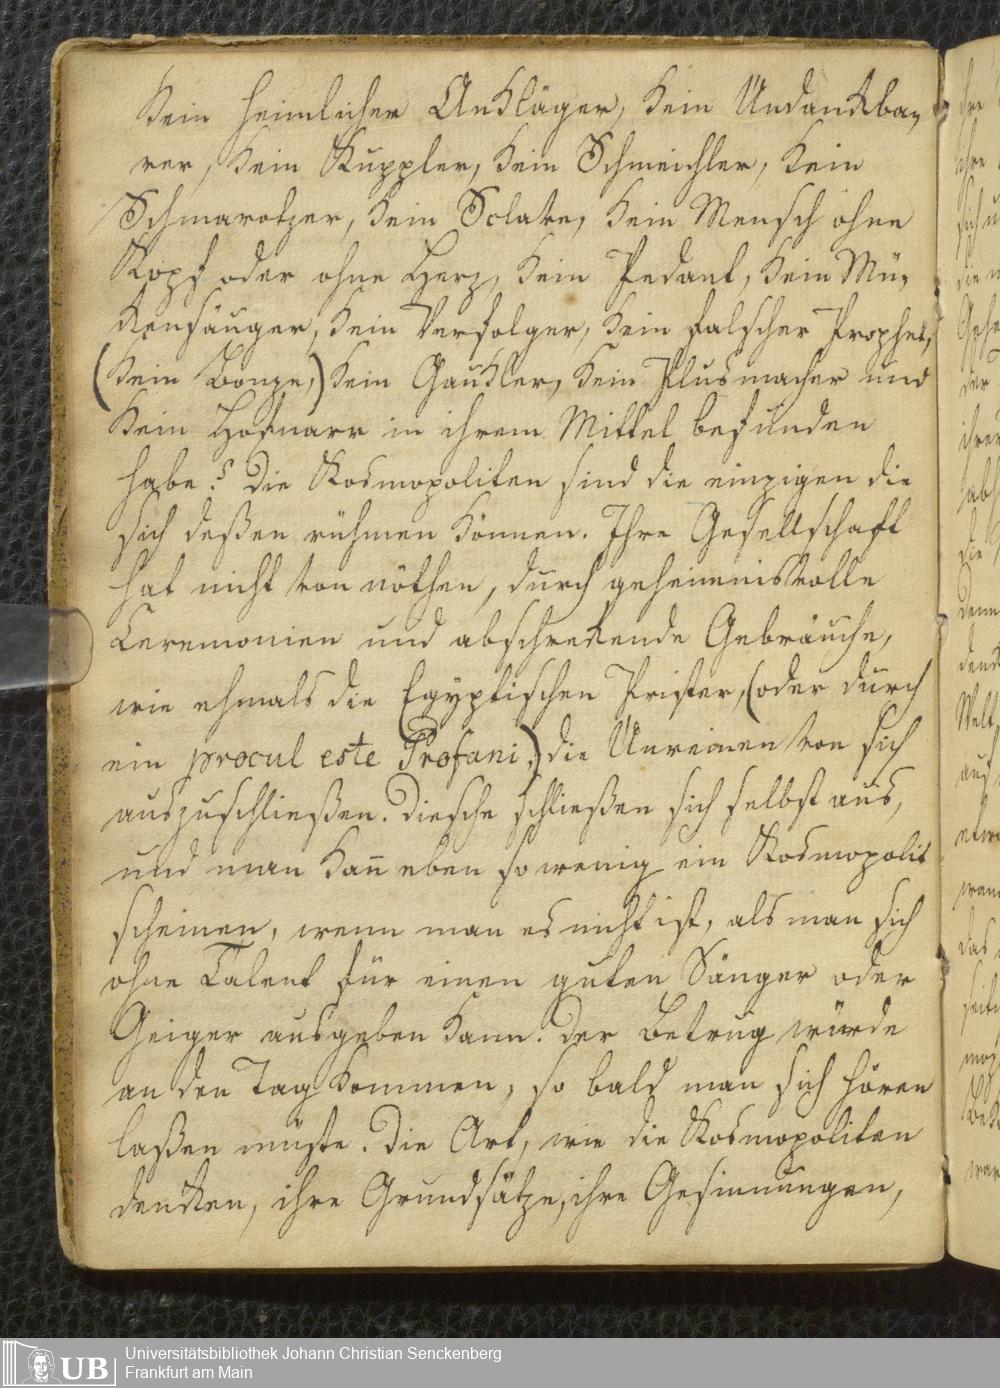 Kein heimlicher Ankläger, kein Undankba-
rer, kein Kuppler, kein Schmeichler, kein
Schmarotzer, kein Sclave, kein Mensch ohne
Kopf oder ohne Herz, kein Pedant, kein Mü-
kensäuger, kein Verfolger, kein falscher Prophet,
(kein Bonze,) kein Gaukler, kein Plusmacher und
kein Hofnarr in ihrem Mittel befunden
habe? Die Kosmopoliten sind die einzigen die
sich deßen rühmen können. Ihre Gesellschaft
hat nicht von nöthen, durch geheimnisvolle
Ceremonien und abschrekende Gebräuche,
wie ehmals die Egyptischen Prister, (oder durch
ein procul este Profani,) die Unreinen von sich
auszuschließen. Diesche schließen sich selbst aus,
und man kan̄ eben so wenig ein Kosmopolit
scheinen, wenn man es nicht ist, als man sich
ohne Talent für einen guten Sänger oder
Geiger ausgeben kann. Der Betrug würde
an den Tag kommen, so bald man sich hören
laßen müste. Die Art, wie die Kosmopoliten
denken, ihre Grundsätze, ihre Gesinnungen,
UB
Universitätsbibliothek Johann Christian Senckenberg
Frankfurt am Main